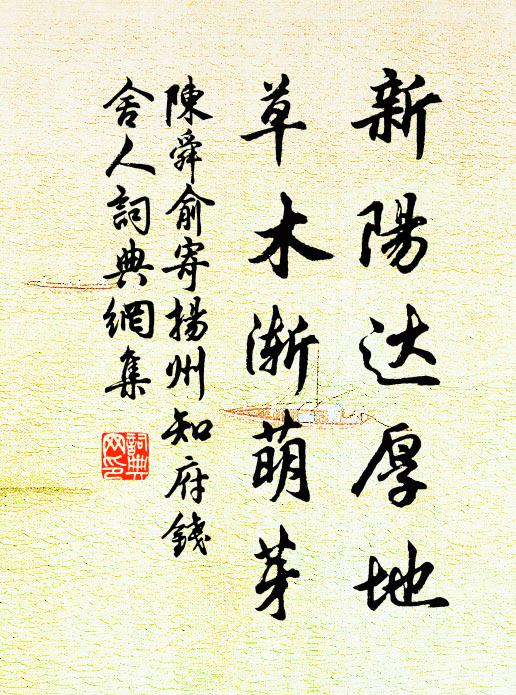 新陽达厚地
草木渐萌芽
陳舜俞寄揚州知府錢
舍人詞典網集
詞典
网印